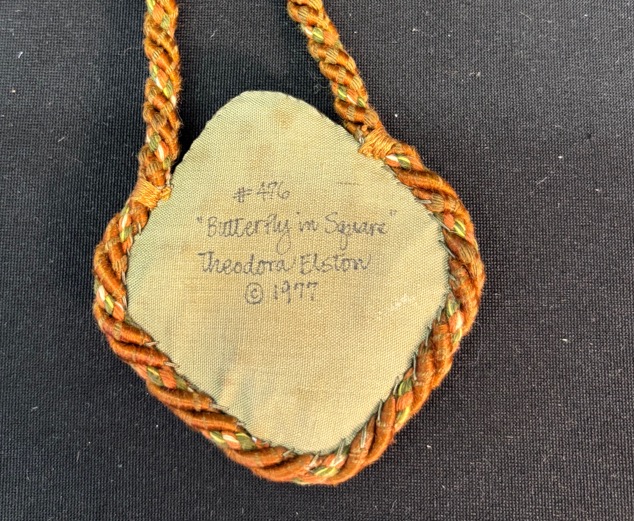 #476
"Butterfly in Square"
Theodora Elston
© 1977